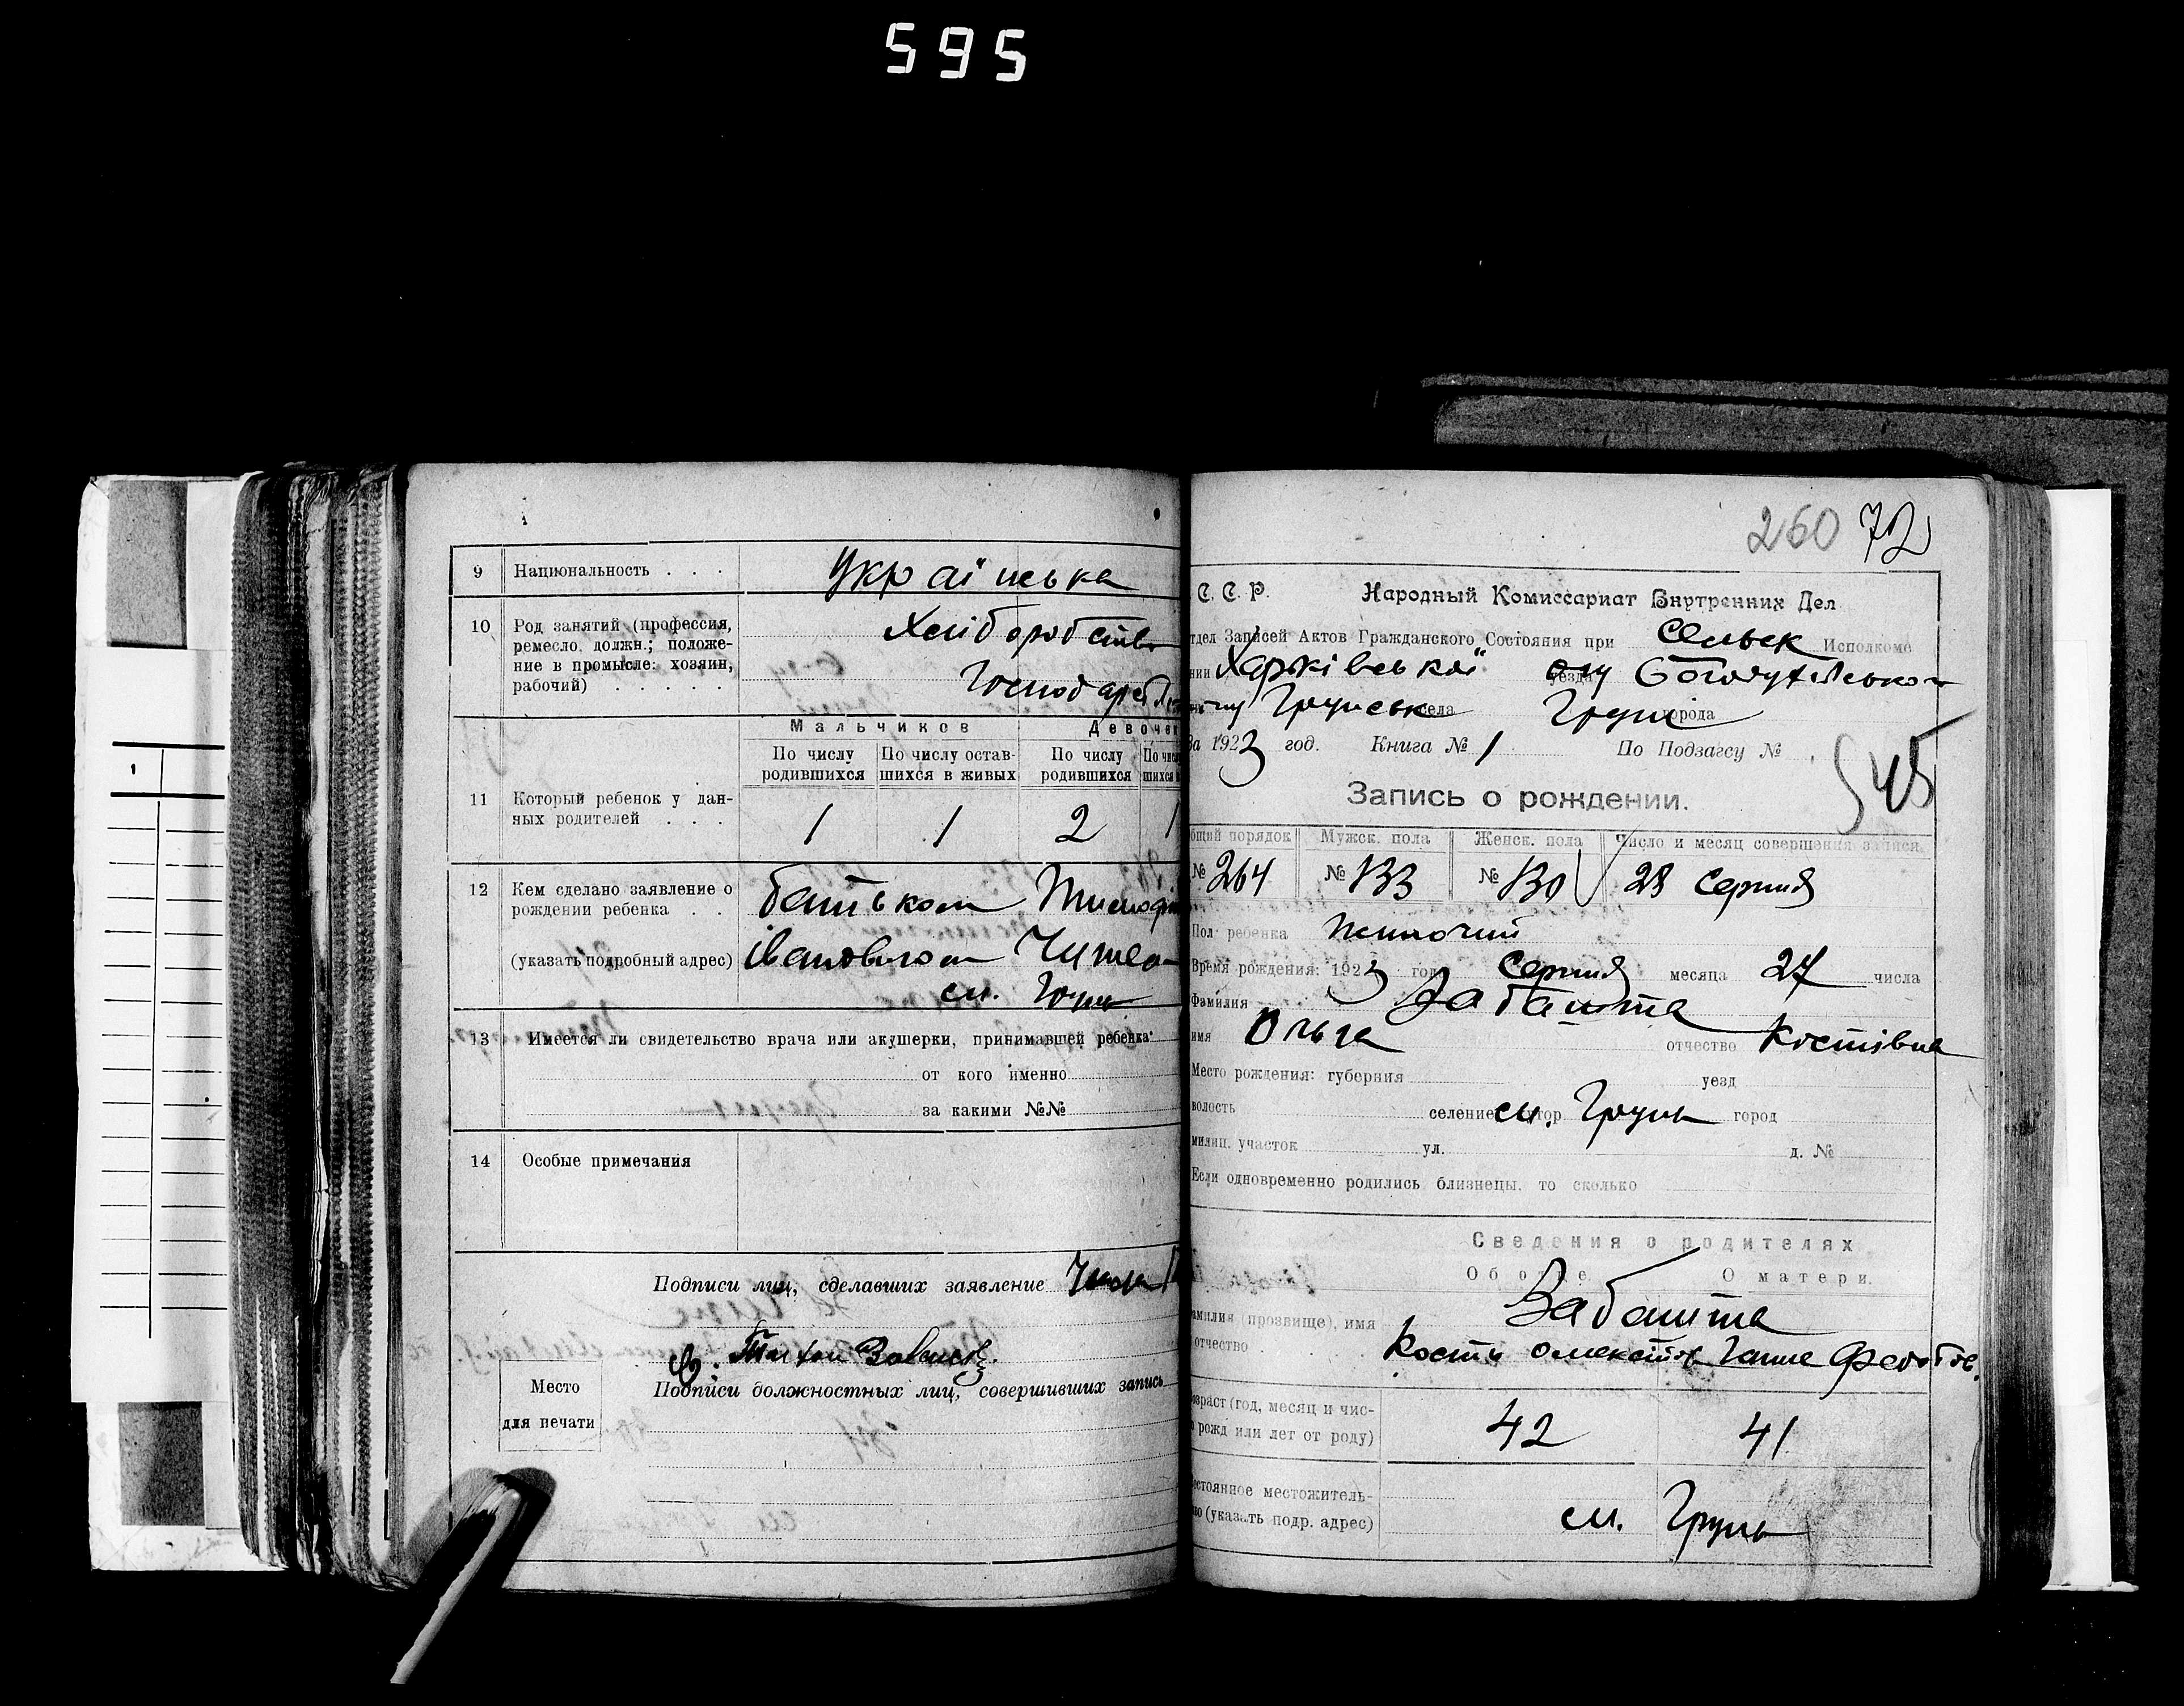 595
9 Национальность . . . Українська
10 Род занятий (профессия,
ремесло, должн.; положе-
ние в промысле: хозяин,
рабочий) . . . . .
Хліборобство
Господар
Мальчиков Девочек
По числу родившихся По числу остав-шихся в живых По числу родившихся
11 Который ребенок у дан-
ных родителей . . .
1 1 2 1
12 Кем сделано заявление о
рождении ребенка . .
батьком
(указать подробный адрес) Івановичом
см. Грунь
13 Имеется ли свидетельство врача или акушерки, принимавшей ребенка
от кого именно
за какими №№
14 Особые примечания
Подписи лиц, сделавших заявление
Подписи должностных лиц, совершивших запись
Место
для печати
260 72
С. С. Р. Народный Комиссариат Внутренних Дел
Записей Актов Гражданского Состояния при Сельск Исполкоме
Харківської уезда
села Грунь города
1923 год. Книга № 1 По Подзагсу №
545
Запись о рождении.
порядок Мужск. пола Женск. пола Число и месяц совершения записи
№ 264 № 133 № 130 28 Серпня
Пол ребенка жиночий
Время рождения: 1923 год Серпня месяца 27 числа
Фамилия Забашта
имя Ольга отчество Костівна
Место рождения: губерния уезд
волость селение см. Грунь город
милиц. участок ул. д. №
Если одновременно родились близнецы, то сколько
Сведения о родителях
Об отце О матери.
Забашта
фамилия (прозвище), имя
отчество
возраст (год, месяц и чис-
рожд или лет от роду)
42 41
местожитель-
(указать подр. адрес)
см. Грунь